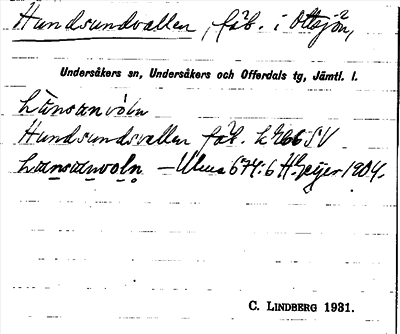 Hundsundvallen, fäb. i Ottsjön,
Undersåkers sn, Undersåkers och Offerdals tg, Jämtl. l.
Hundsundsvallen fäb. k266 SV
hænsanvoln — Ulma 674:6 H. Geijer 1904.
C. LINDBERG 1931.